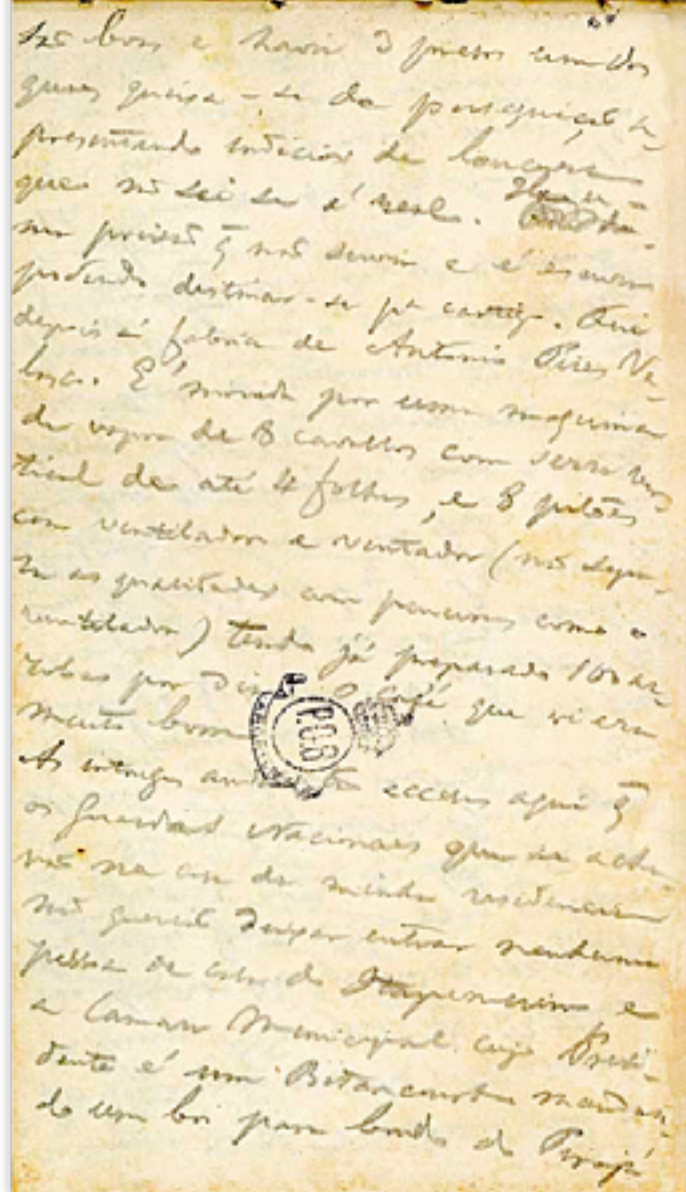 bom e havia 3 presos um dos
quaes queixa-se de perseguição a-
presentando indicios de loucura
que não sei se é real.
ma prisão q̃ não servia e é escura
podendo destinar-se pa castigo. Fui
depois á fabrica de Antonio Pires Ve-
loso. É movida por uma maquina
de vapor de 8 cavallos com serra ver-
tical de até 4 folhas, e 8 pilões
com ventilador e ventador (não sepa-
ra as qualidades com peneiras como o
ventilador) tendo já preparado 100 ar-
robas por dia. O Café que vi era
muito bom
P.C.B
As intrigas tão accesas aqui q̃
os Guardas Nacionaes que se acha-
vão na casa da minha residencia
não querião deixar entrar nenhuma
pessoa da casa do Itapemirim e
a Camara Municipal cujo Presi-
dente é um Bitancourt mandan-
do um boi para bordo do Pirajá